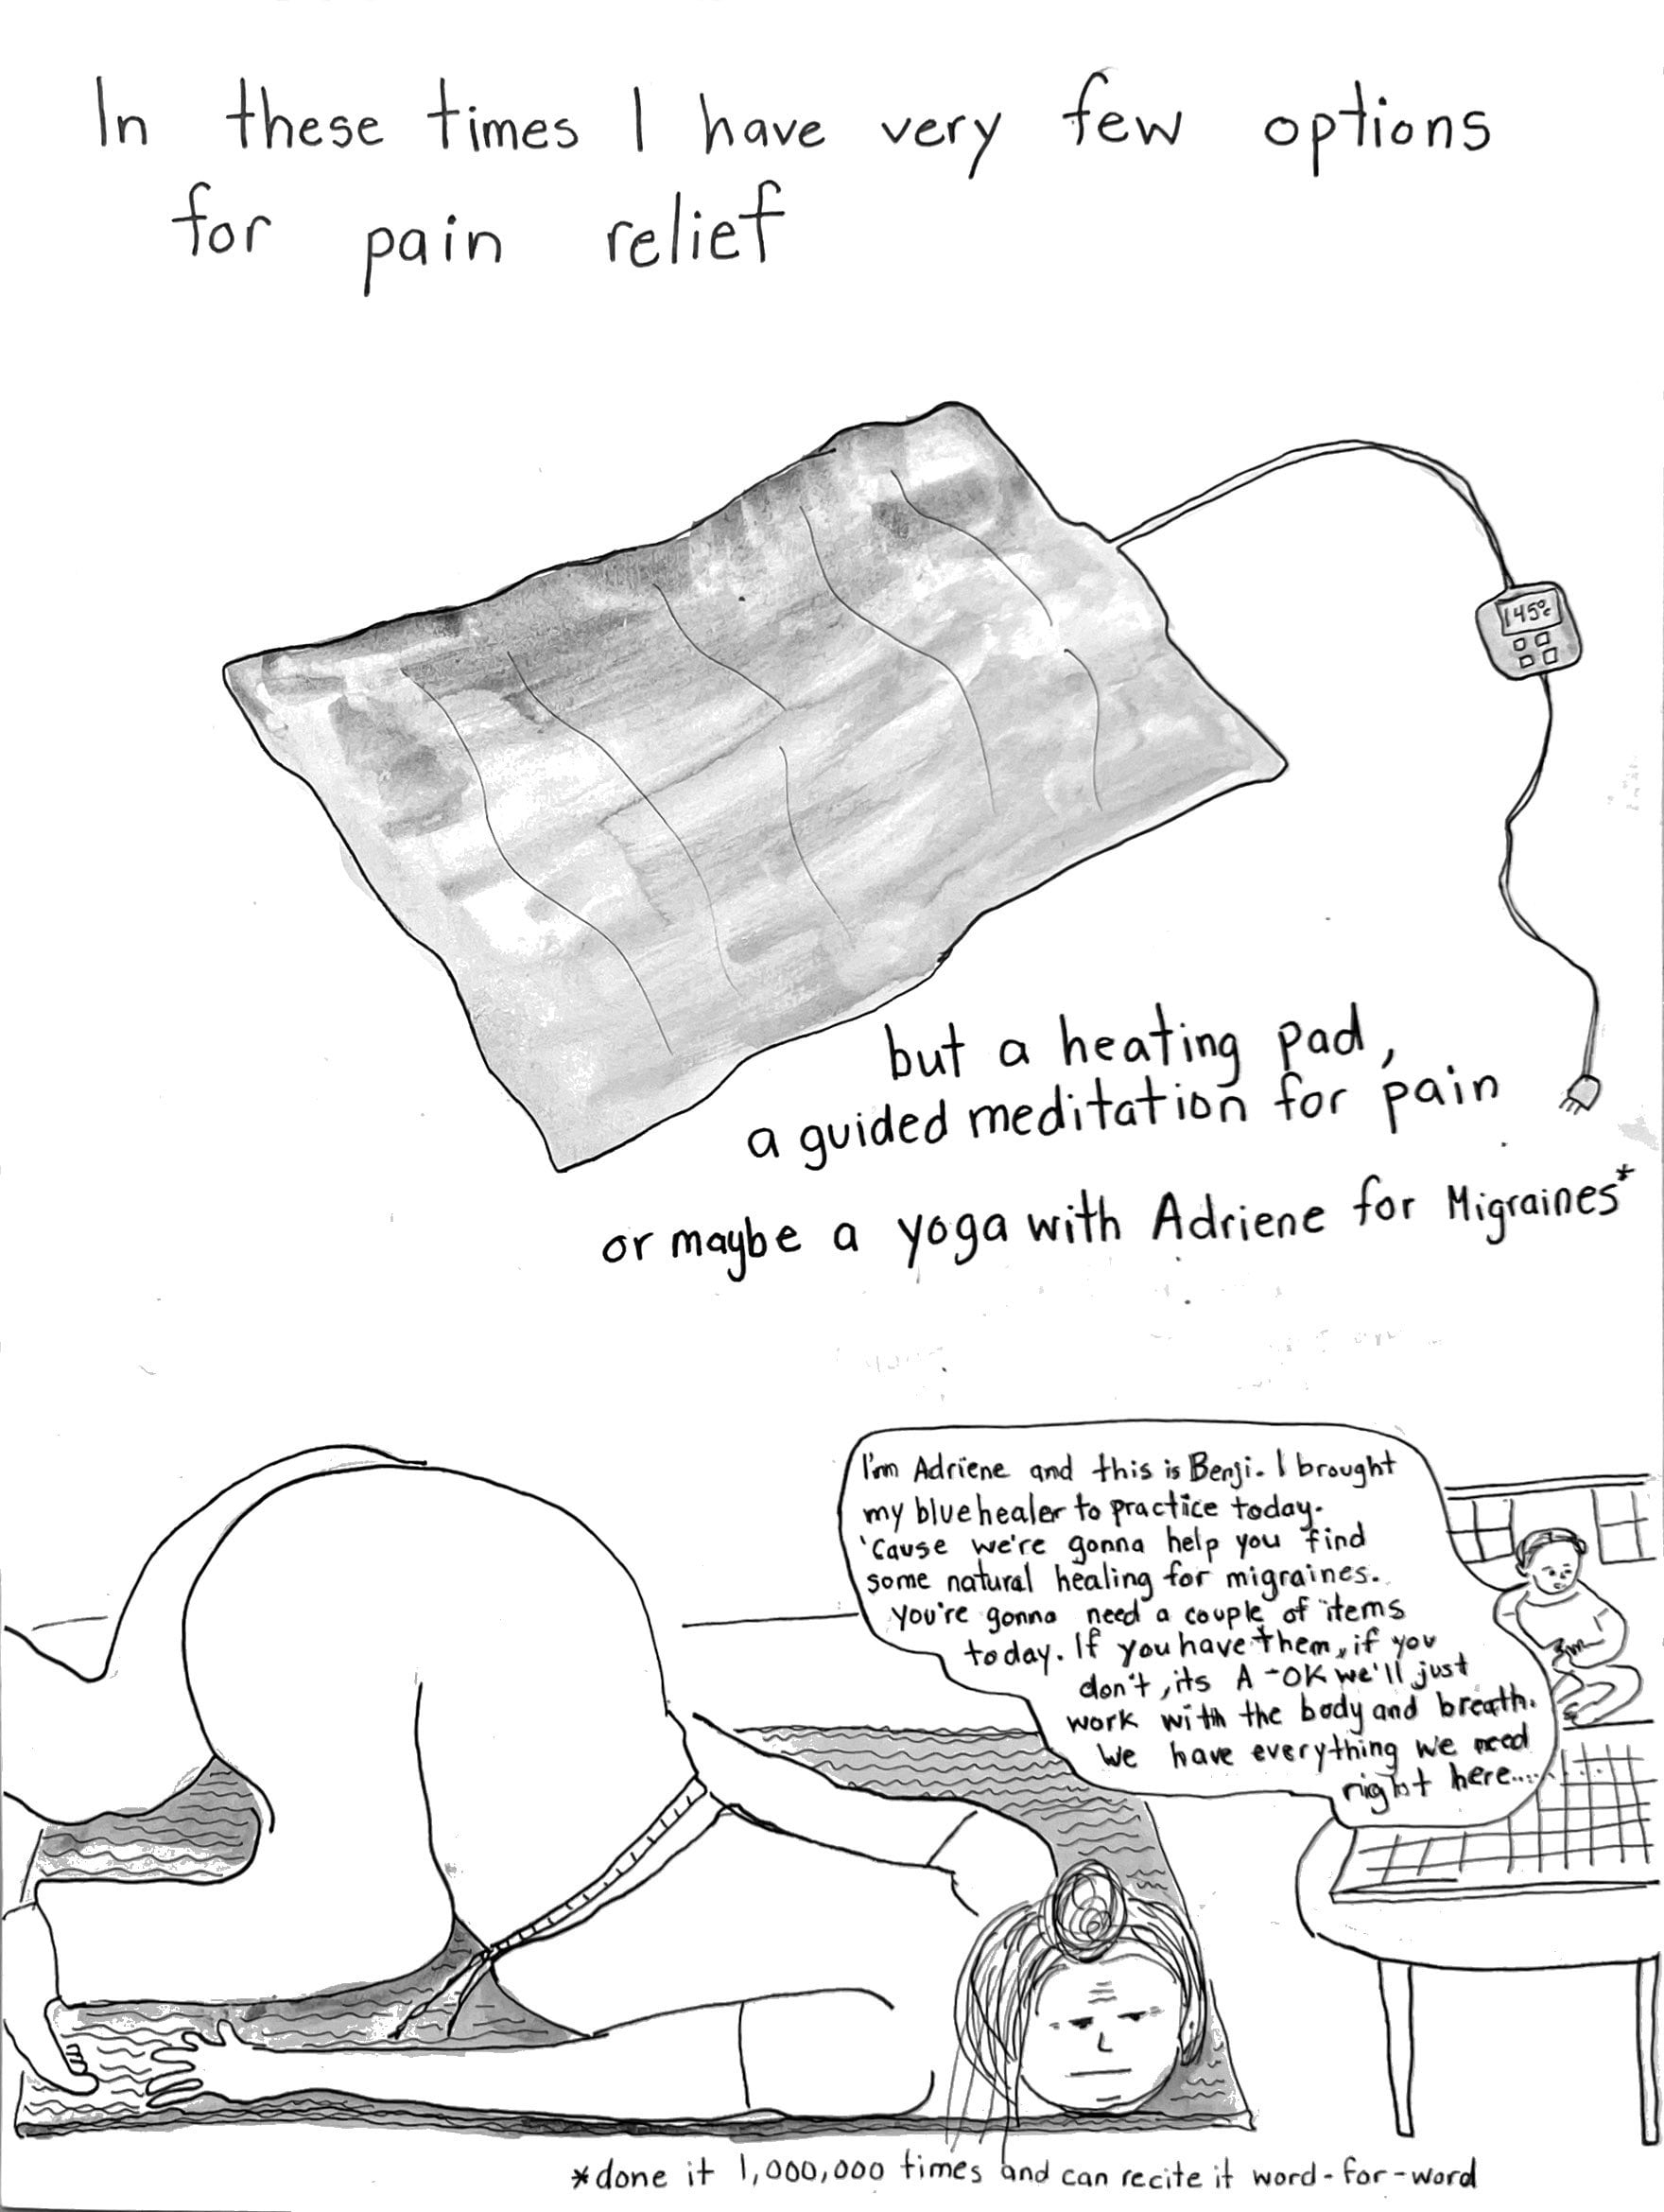 In these times I have very few options
for pain relief
145°c
but a heating pad,
a guided meditation for pain
or maybe a yoga with Adriene for Migraines*
I'm Adriene and this is Benji. I brought
my blue healer to practice today.
'Cause we're gonna help you find
some natural healing for migraines.
you're gonna need a couple of items
today. If you have them, if you
don't, its A-OK we'll just
work with the body and breath.
We have everything we need
right here....
*done it 1,000,000 times and can recite it word-for-word